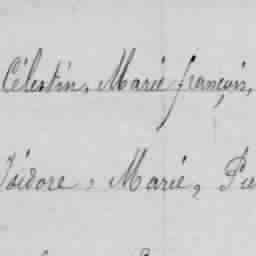 Célestin, Marie françois,
Isidore, Marie, Pie